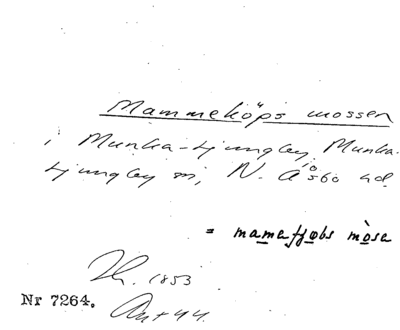 Mammeköps mossen
i Munka-Ljungby, Munka-
Ljungby sn, N. Åsbo hd.
= mamaʃʃøbs mòsa
Th. 1853
Nr 7264. Ant 44.